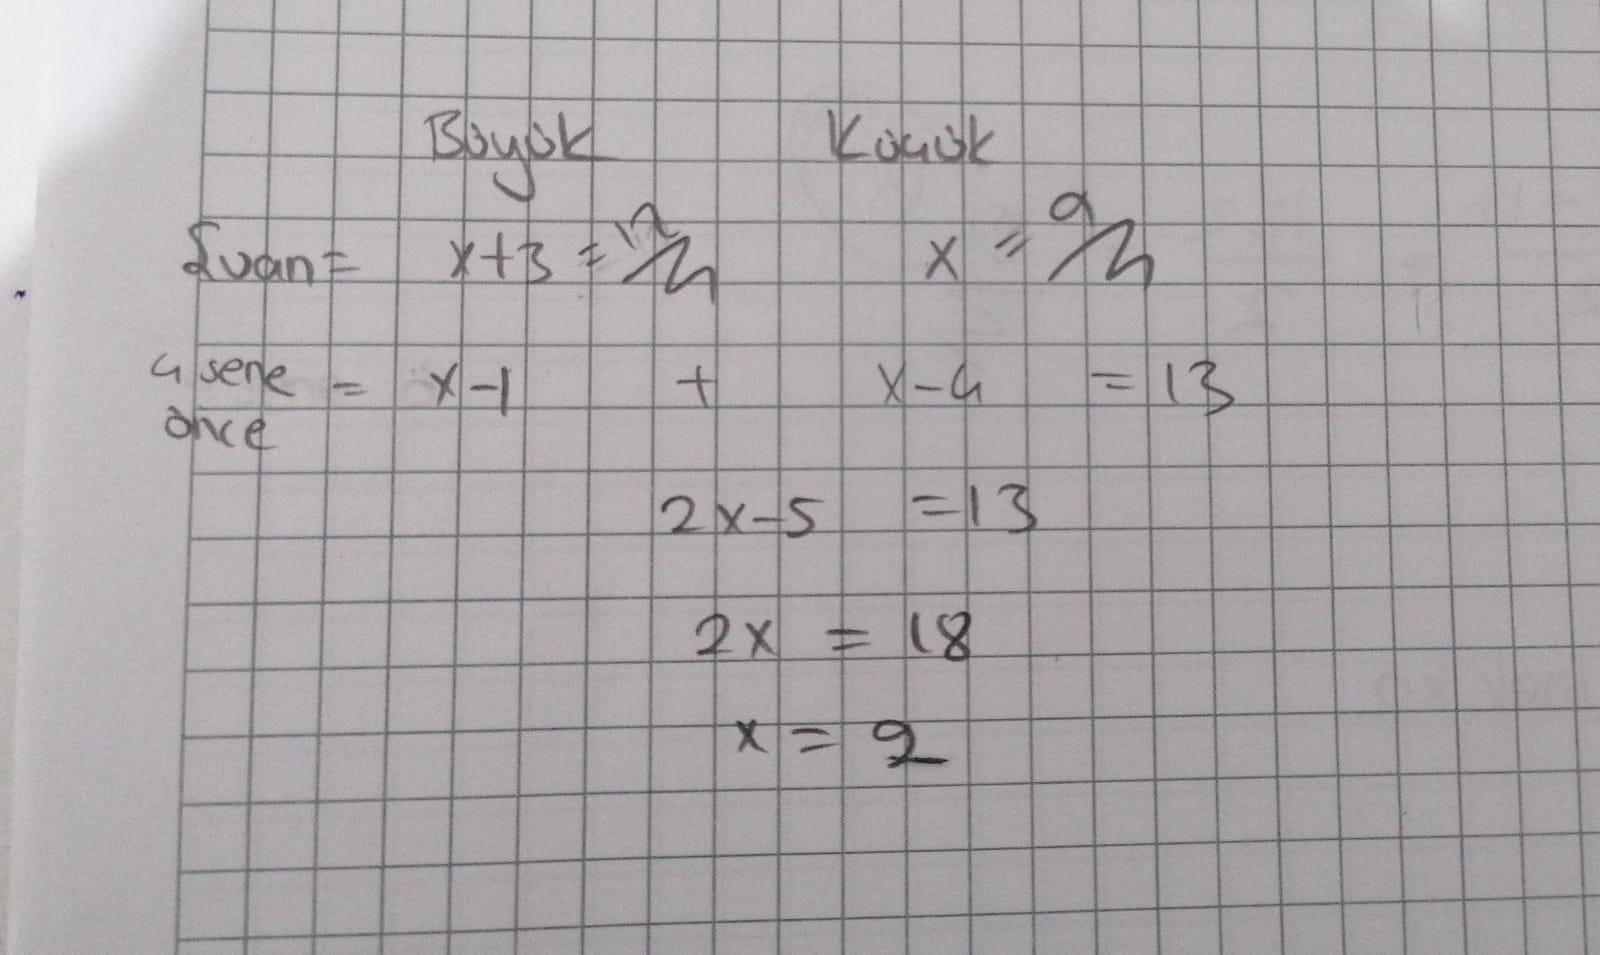 Büyük Küçük
Şuan = x+3 = 12 x = 9
4 sene = x-1 + x-4 = 13
önce
2x-5 = 13
2x = 18
x = 9